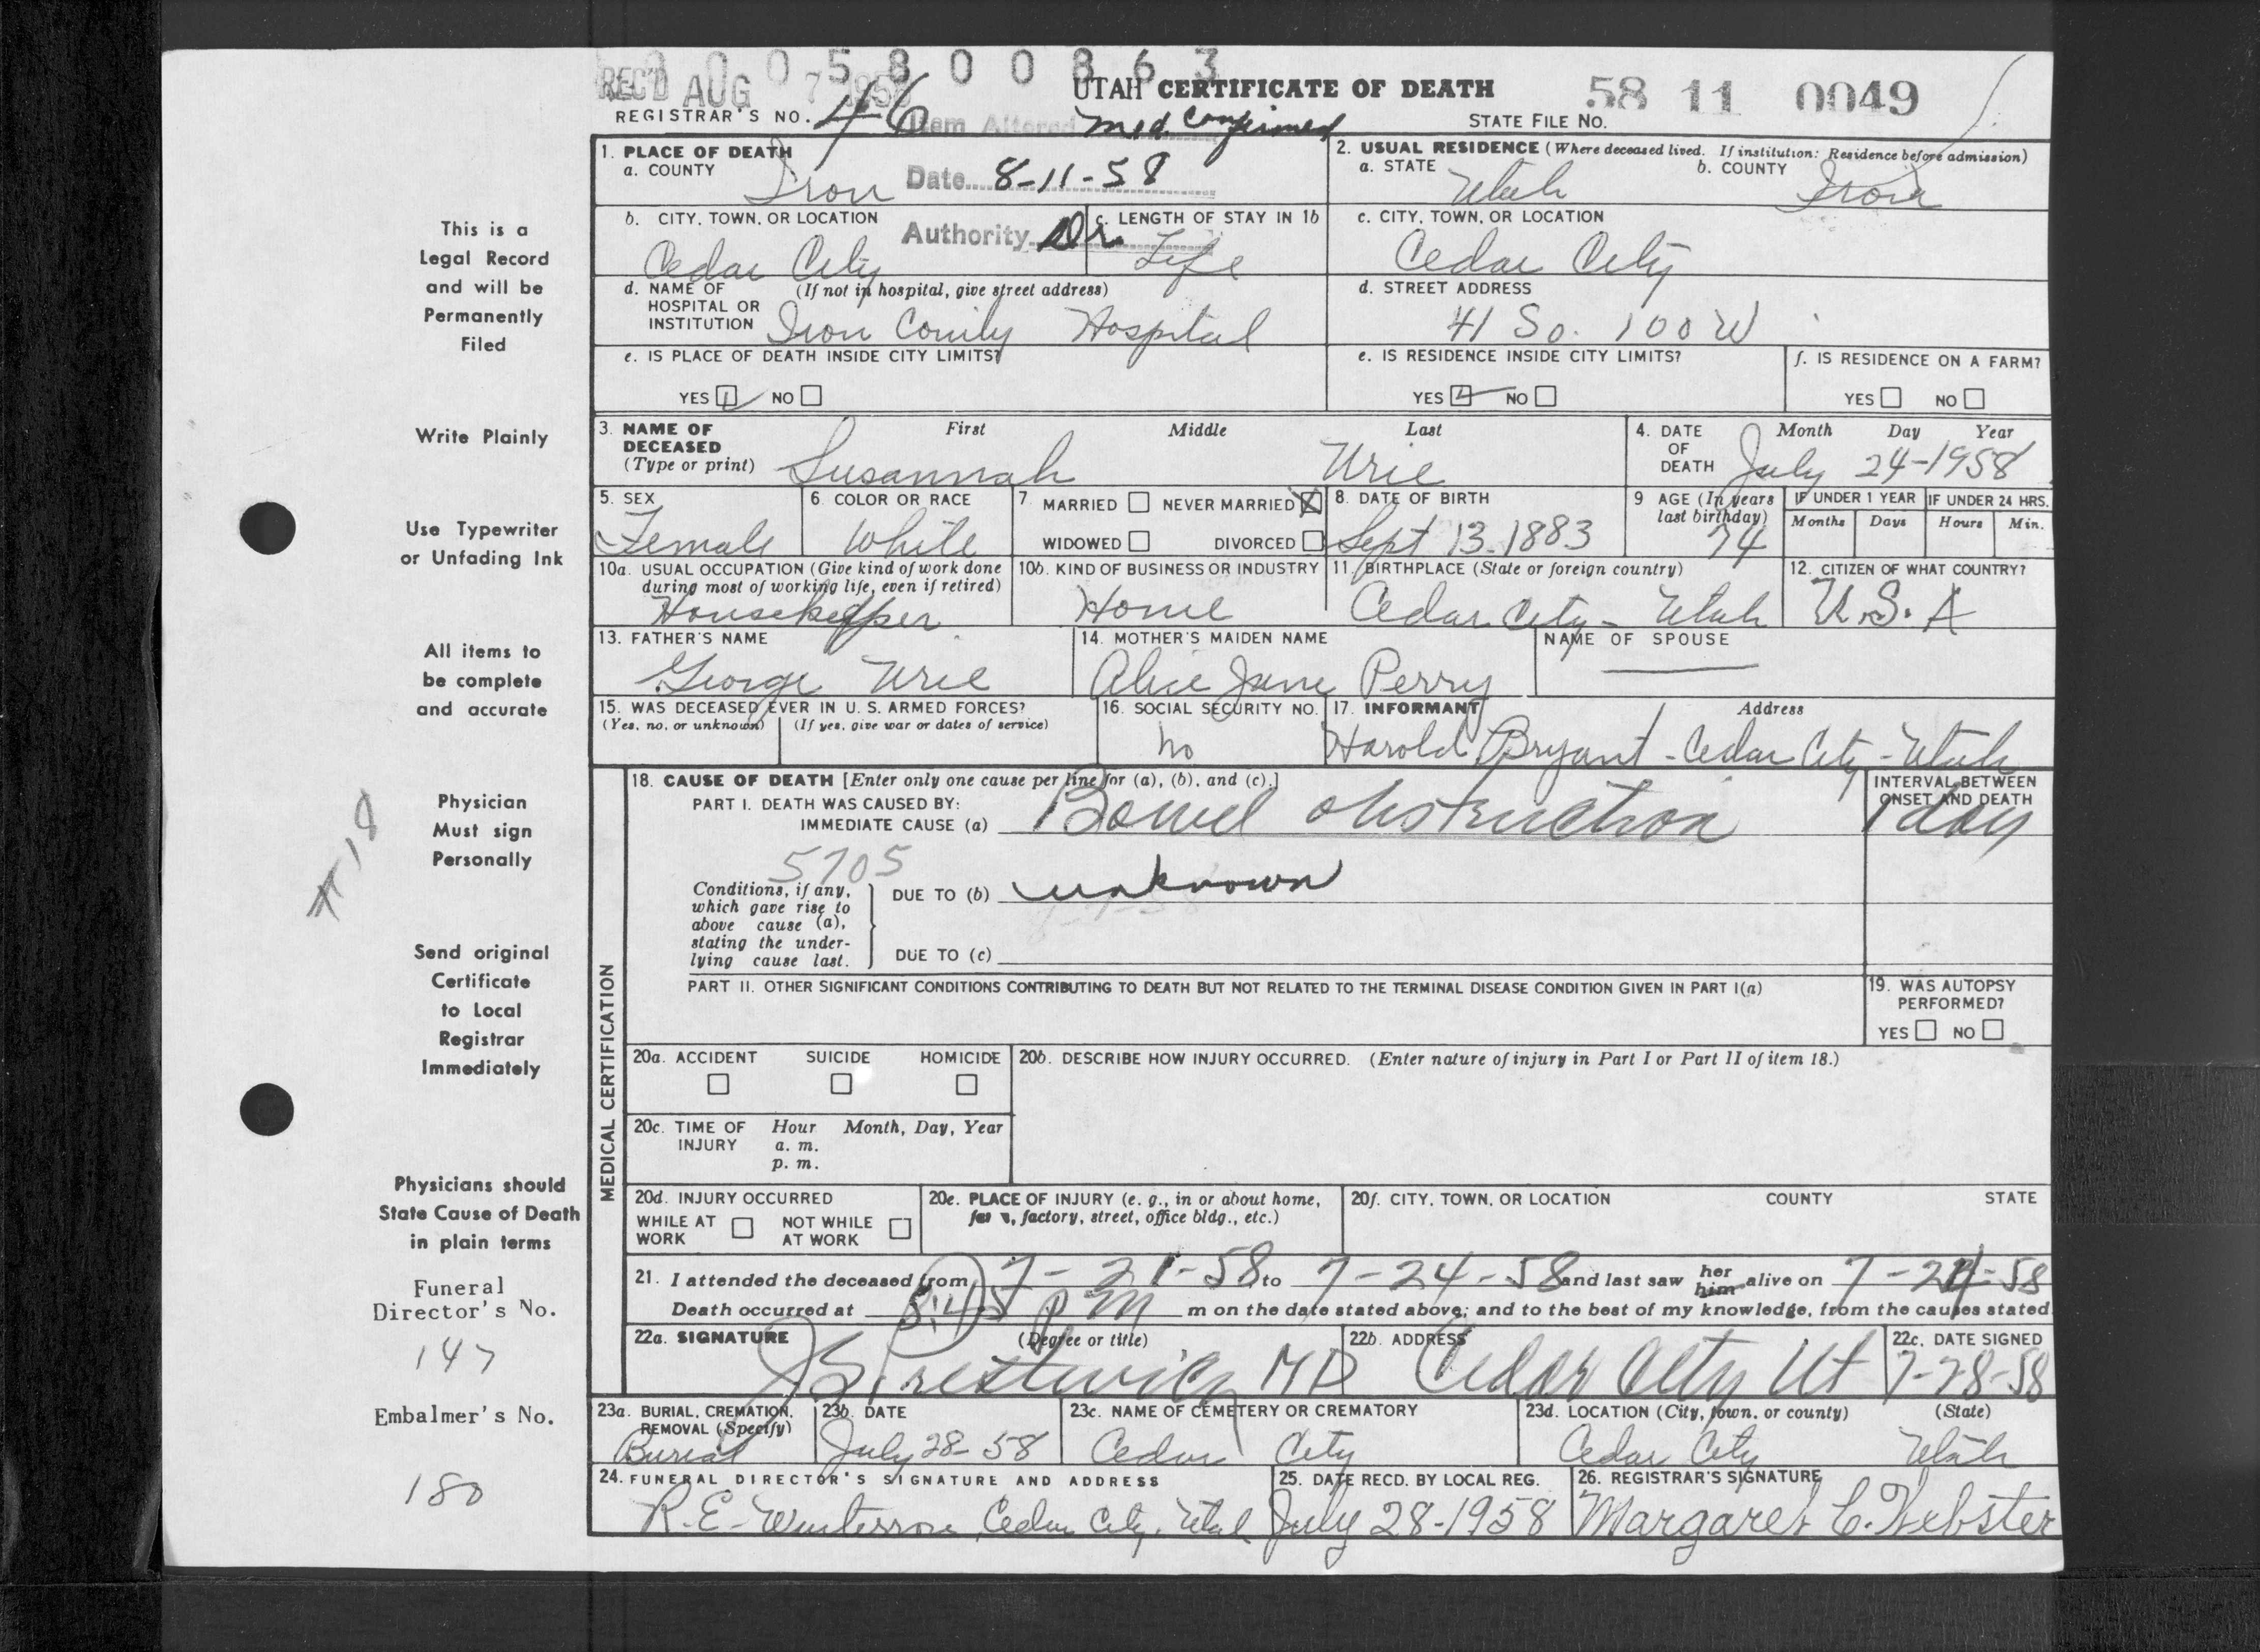 0 0 0 5 8 0 0 8 6 3
REC'D AUG 7 1958
UTAH CERTIFICATE OF DEATH
58 11 0049
REGISTRAR'S NO. 46
Item Altered Med. Confirmed
STATE FILE NO.
Date 8-11-58
Authority Dr.
1. PLACE OF DEATH
a. COUNTY Iron
2. USUAL RESIDENCE (Where deceased lived. If institution: Residence before admission)
a. STATE Utah b. COUNTY Iron
b. CITY, TOWN, OR LOCATION Cedar City
c. LENGTH OF STAY IN 1b Life
c. CITY, TOWN, OR LOCATION Cedar City
d. NAME OF HOSPITAL OR INSTITUTION (If not in hospital, give street address) Iron County Hospital
d. STREET ADDRESS 41 So. 100 W
e. IS PLACE OF DEATH INSIDE CITY LIMITS?
YES NO
e. IS RESIDENCE INSIDE CITY LIMITS?
YES NO
f. IS RESIDENCE ON A FARM?
YES NO
3. NAME OF DECEASED (Type or print) First Middle Last
Susannah Urie
4. DATE OF DEATH Month Day Year
July 24-1958
5. SEX Female
6. COLOR OR RACE White
7. MARRIED NEVER MARRIED X
WIDOWED DIVORCED
8. DATE OF BIRTH Sept 13-1883
9 AGE (In years last birthday) 74
IF UNDER 1 YEAR IF UNDER 24 HRS.
Months Days Hours Min.
10a. USUAL OCCUPATION (Give kind of work done during most of working life, even if retired) Housekeeper
10b. KIND OF BUSINESS OR INDUSTRY Home
11. BIRTHPLACE (State or foreign country) Cedar City - Utah
12. CITIZEN OF WHAT COUNTRY? U.S.A
13. FATHER'S NAME George Urie
14. MOTHER'S MAIDEN NAME Alice Jane Perry
NAME OF SPOUSE
15. WAS DECEASED EVER IN U. S. ARMED FORCES?
(Yes, no, or unknown) (If yes, give war or dates of service)
16. SOCIAL SECURITY NO. no
17. INFORMANT Address
Harold Bryant - Cedar City - Utah
MEDICAL CERTIFICATION
18. CAUSE OF DEATH [Enter only one cause per line for (a), (b), and (c).]
PART I. DEATH WAS CAUSED BY:
IMMEDIATE CAUSE (a) Bowel obstruction
INTERVAL BETWEEN ONSET AND DEATH
1 day
5705
Conditions, if any, which gave rise to above cause (a), stating the underlying cause last.
DUE TO (b) unknown
DUE TO (c)
PART II. OTHER SIGNIFICANT CONDITIONS CONTRIBUTING TO DEATH BUT NOT RELATED TO THE TERMINAL DISEASE CONDITION GIVEN IN PART I(a)
19. WAS AUTOPSY PERFORMED?
YES NO
20a. ACCIDENT SUICIDE HOMICIDE
20b. DESCRIBE HOW INJURY OCCURRED. (Enter nature of injury in Part I or Part II of item 18.)
20c. TIME OF INJURY Hour Month, Day, Year
a. m.
p. m.
20d. INJURY OCCURRED
WHILE AT WORK NOT WHILE AT WORK
20e. PLACE OF INJURY (e. g., in or about home, farm, factory, street, office bldg., etc.)
20f. CITY, TOWN, OR LOCATION COUNTY STATE
21. I attended the deceased from 7-21-58 to 7-24-58 and last saw her him alive on 7-24-58
Death occurred at 5:45 pm m on the date stated above; and to the best of my knowledge, from the causes stated
22a. SIGNATURE (Degree or title)
JS Prestwich MD
22b. ADDRESS Cedar City Ut
22c. DATE SIGNED 7-28-58
23a. BURIAL, CREMATION, REMOVAL (Specify) Burial
23b. DATE July 28-58
23c. NAME OF CEMETERY OR CREMATORY Cedar City
23d. LOCATION (City, town, or county) (State)
Cedar City Utah
24. FUNERAL DIRECTOR'S SIGNATURE AND ADDRESS
R.E. Cedar City, Utah
25. DATE RECD. BY LOCAL REG. July 28-1958
26. REGISTRAR'S SIGNATURE Margaret C. Webster
This is a
Legal Record
and will be
Permanently
Filed
Write Plainly
Use Typewriter
or Unfading Ink
All items to
be complete
and accurate
Physician
Must sign
Personally
#18
Send original
Certificate
to Local
Registrar
Immediately
Physicians should
State Cause of Death
in plain terms
Funeral
Director's No.
147
Embalmer's No.
180